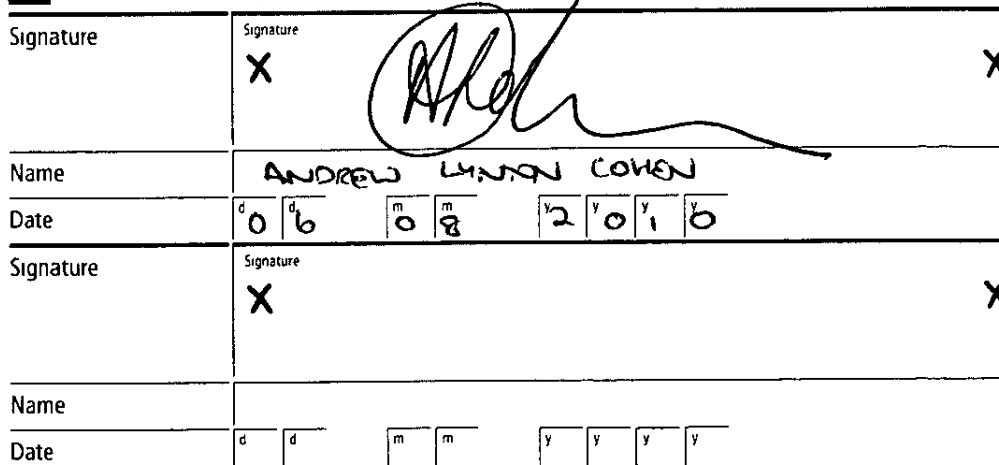 Signature Signature
X X
Name ANDREW LYNTON COHEN
Date d0 d6 m0 m8 y2 y0 y1 y0
Signature Signature
X X
Name
Date d d m m y y y y